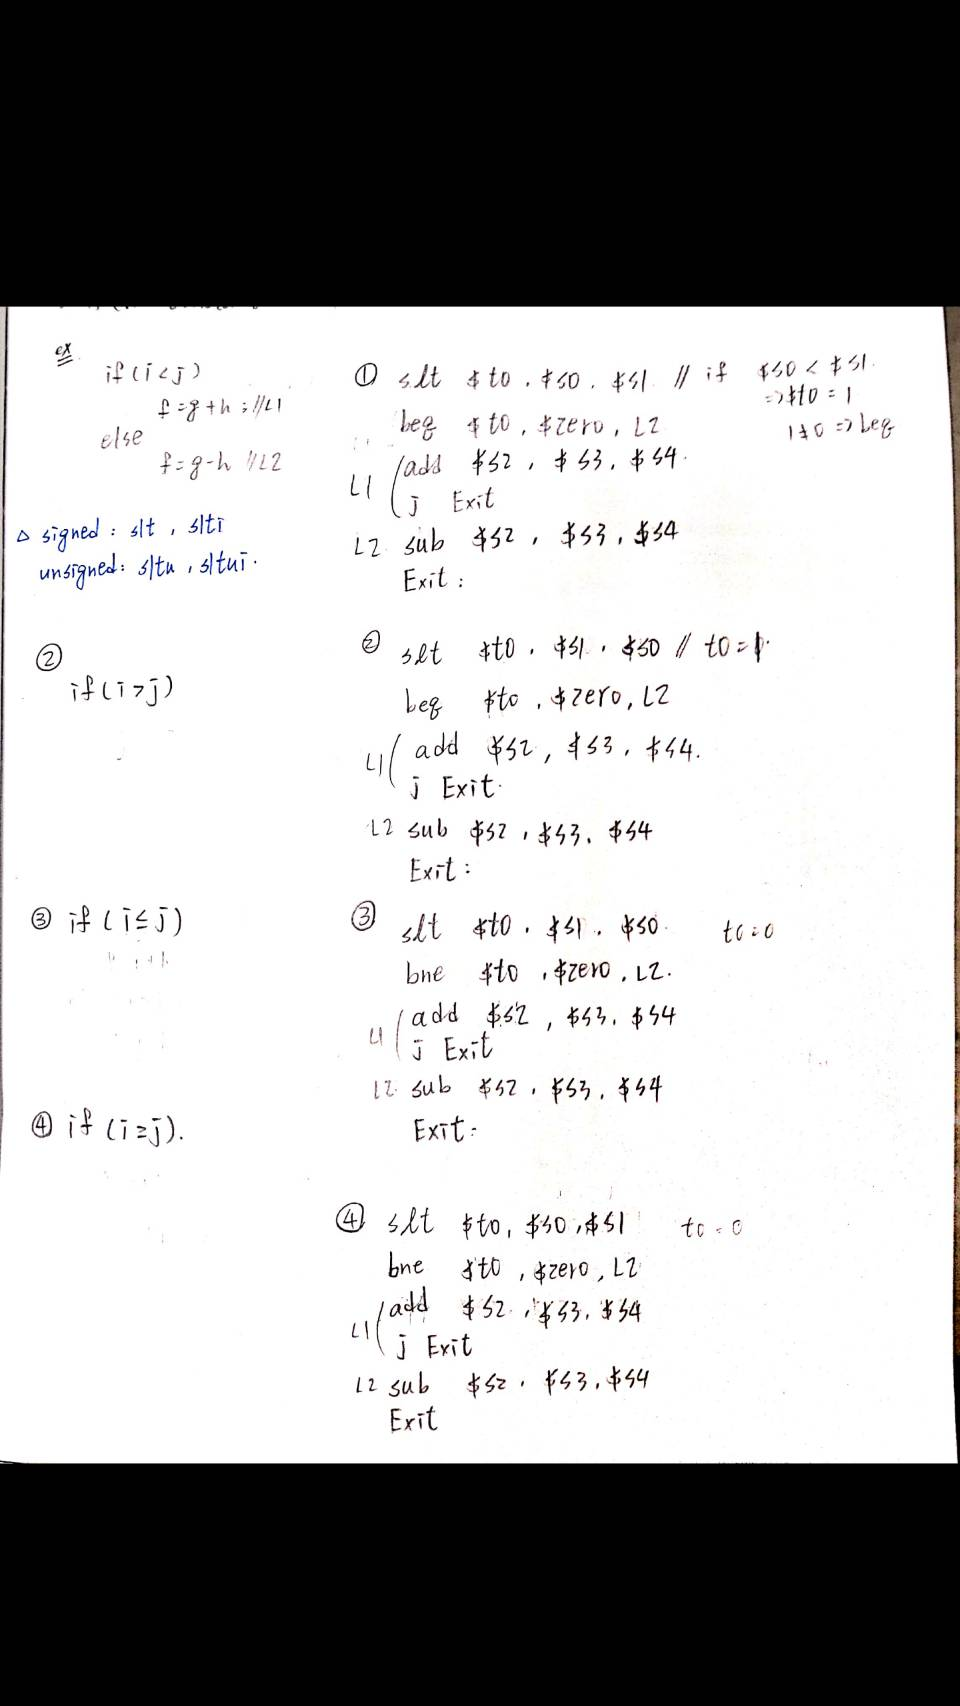 ex
if (i < j)
f = g + h ; //L1
else
f = g - h //L2
△ signed : slt , slti
unsigned : sltu , sltui .
① slt $t0 , $s0 , $s1 // if $s0 < $s1 .
=> $t0 = 1
beq $t0 , $zero , L2
1≠0 => beq
L1 add $s2 , $s3 , $s4 .
j Exit
L2 sub $s2 , $s3 , $s4
Exit :
②
if (i > j)
② slt $t0 , $s1 , $s0 // t0 = 1
beq $t0 , $zero , L2
L1 add $s2 , $s3 , $s4 .
j Exit .
L2 sub $s2 , $s3 , $s4
Exit :
③ if (i ≤ j)
③ slt $t0 , $s1 , $s0 . t0 = 0
bne $t0 , $zero , L2 .
L1 add $s2 , $s3 , $s4
j Exit
L2 sub $s2 , $s3 , $s4
Exit :
④ if (i ≥ j) .
④ slt $t0 , $s0 , $s1 t0 = 0
bne $t0 , $zero , L2
L1 add $s2 , $s3 , $s4
j Exit
L2 sub $s2 , $s3 , $s4
Exit